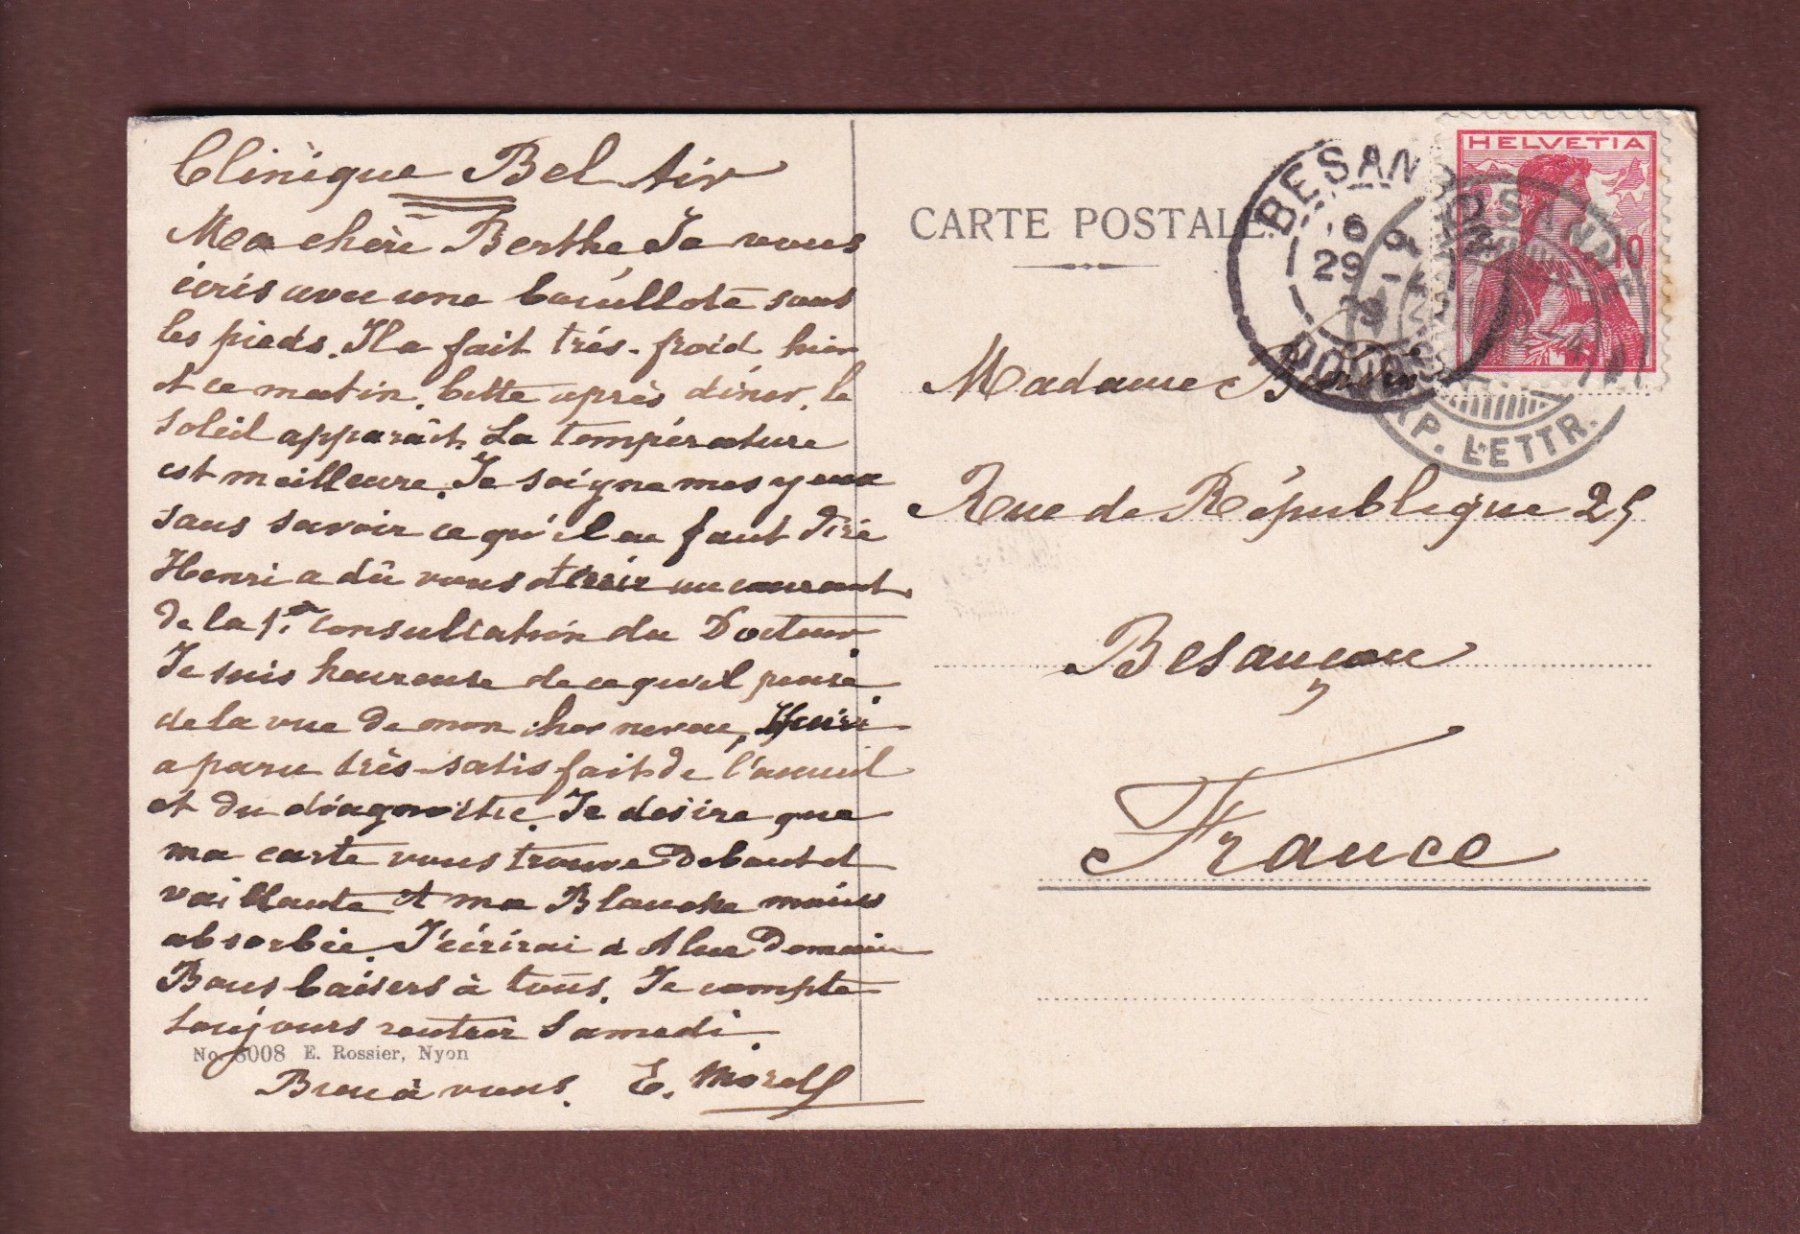 Clinique Bel Air
Ma chère Berthe Je vous
écris avec une bouillote sous
les pieds. Il a fait très-froid hier
et ce matin. Cette après dîner, le
soleil apparaît. La température
est meilleure. Je soigne mes yeux
sans savoir ce qu'il en faut dire
Henri a dû vous tenir au courant
de la 1re consultation du Docteur
Je suis heureuse de ce qu'il pense
de la vue de mon cher neveu, Henri
a paru très-satisfait de l'accueil
et du diagnostic. Je désire que
ma carte vous trouve debout et
vaillante et ma Blanche moins
absorbée. J'écrirai à Demain
Bons baisers à tous. Je compte
toujours rentrer Samedi.
No 8008 E. Rossier, Nyon
à vous. E. Morel
CARTE POSTALE.
HELVETIA
10
BESANÇON
29
DOUBS
LAUSANNE
EXP. LETTR.
Madame
Rue de République 25
Besançon
France